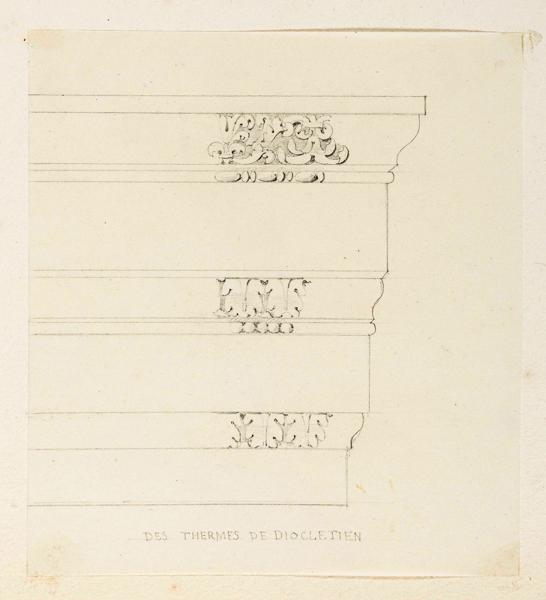 DES THERMES DE DIOCLETIEN